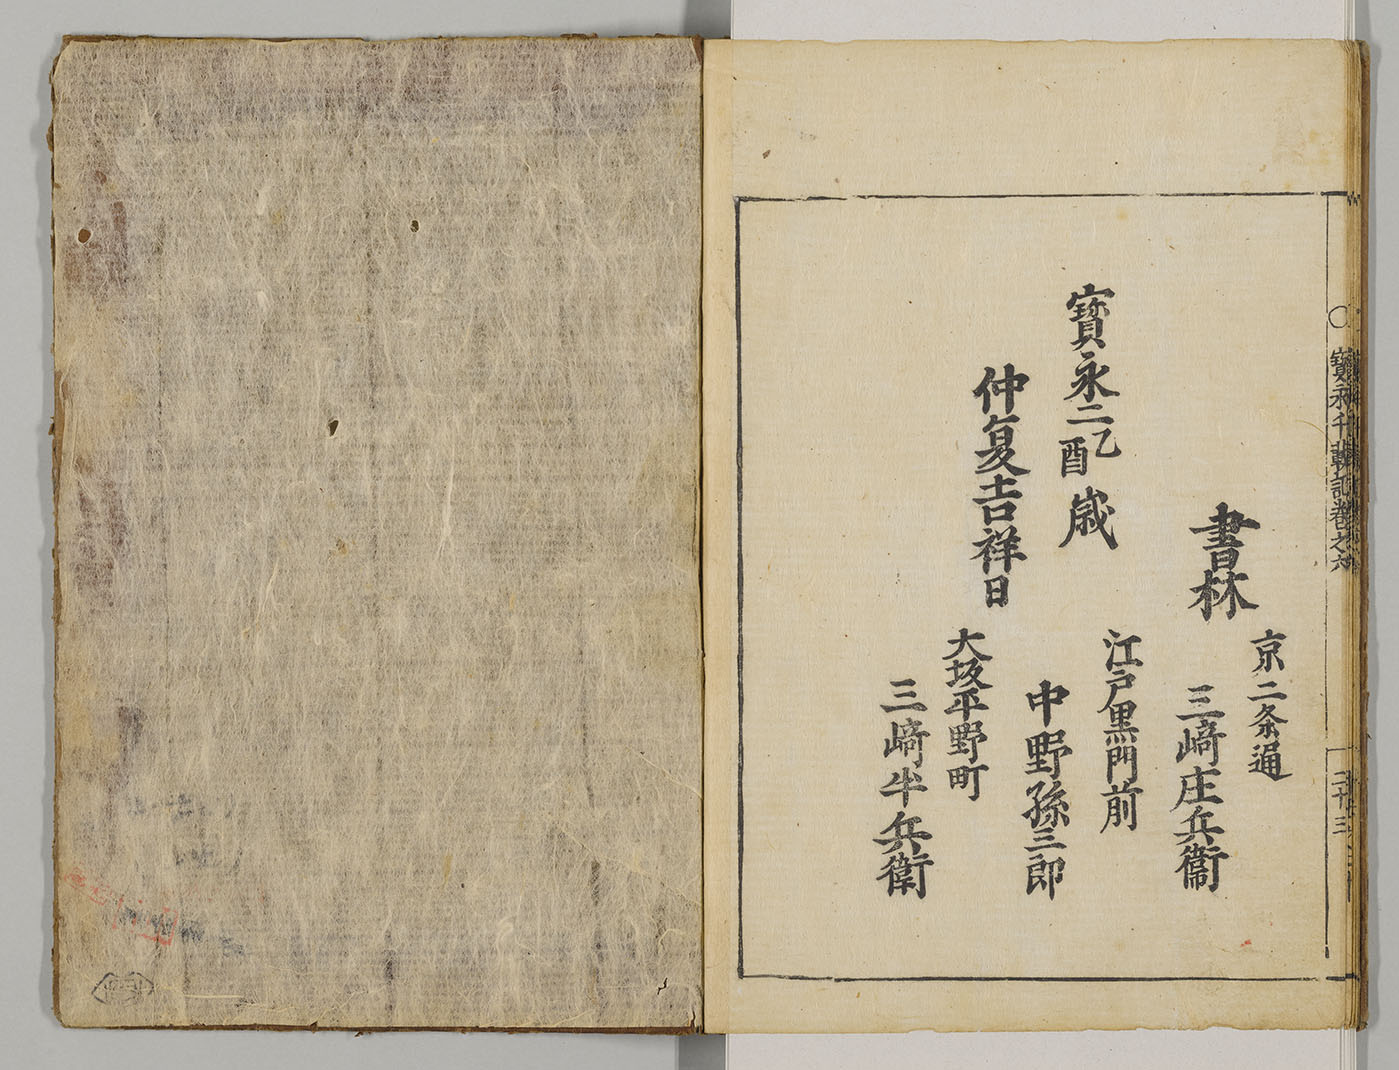 〇 寳永千載記巻之六
二十三
寳永二乙酉歳
仲夏吉祥日
書林
京二条通
三﨑庄兵衞
江戸黒門前
中野孫三郎
大坂平野町
三﨑半兵衛